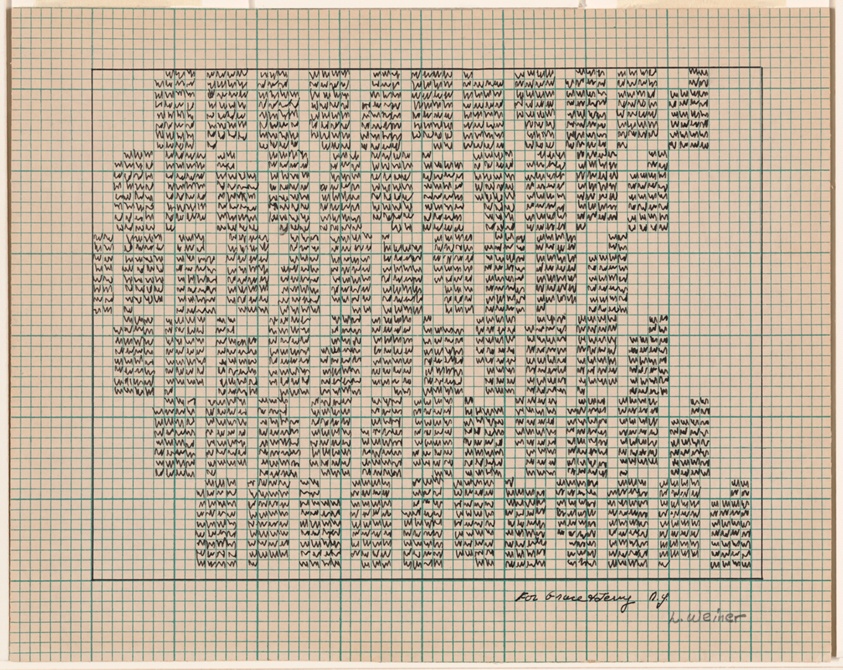 For Grace & Jerry N.Y
L. Weiner